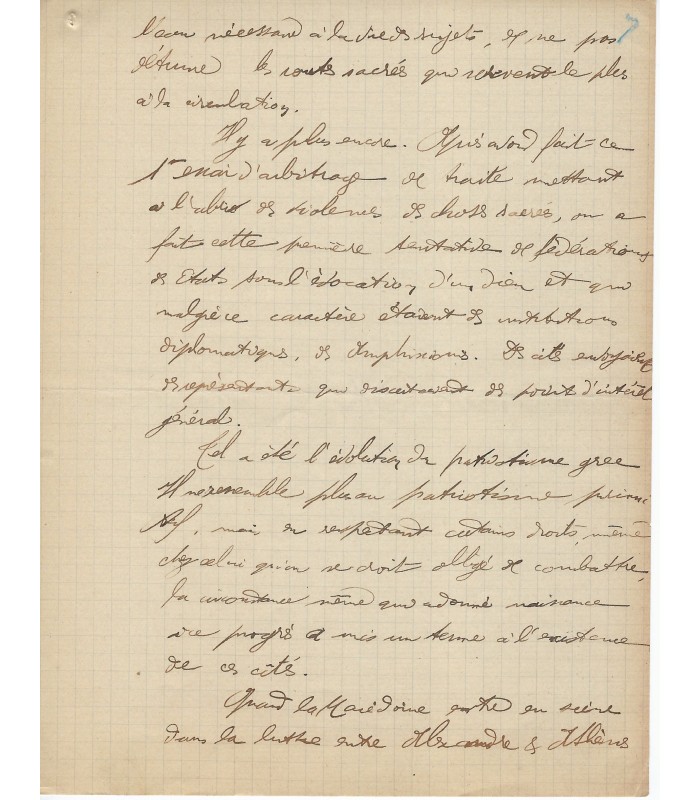 7
l'eau nécessaire à la vie des sujets, et ne pas
détruire les routes sacrés qui servent le plus
à la circulation.
Il y a plus encore. Après avoir fait ce
1er essai d'arbitrage de traité mettant
à l'abri des violences des choses sacrés, on a
fait cette première tentative de fédérations
des Etats sous l'évocation d'un dieu et qui
malgré ce caractère étaient des institutions
diplomatiques, des Amphictions. Des cités envoyaient
des représentants qui discutaient des points d'intérêt
général.
Tel a été l'évolution du patriotisme grec
Il ne ressemble plus au patriotisme primi
tif, mais en respectant certains droits, même
chez celui qu'on se croit obligé de combattre,
la circonstance même qui a donné naissance
à ce progrès a mis un terme à l'existance
de ces cités.
Quand la Macédoine entre en scène
dans la luthe entre Alexandre & Athènes